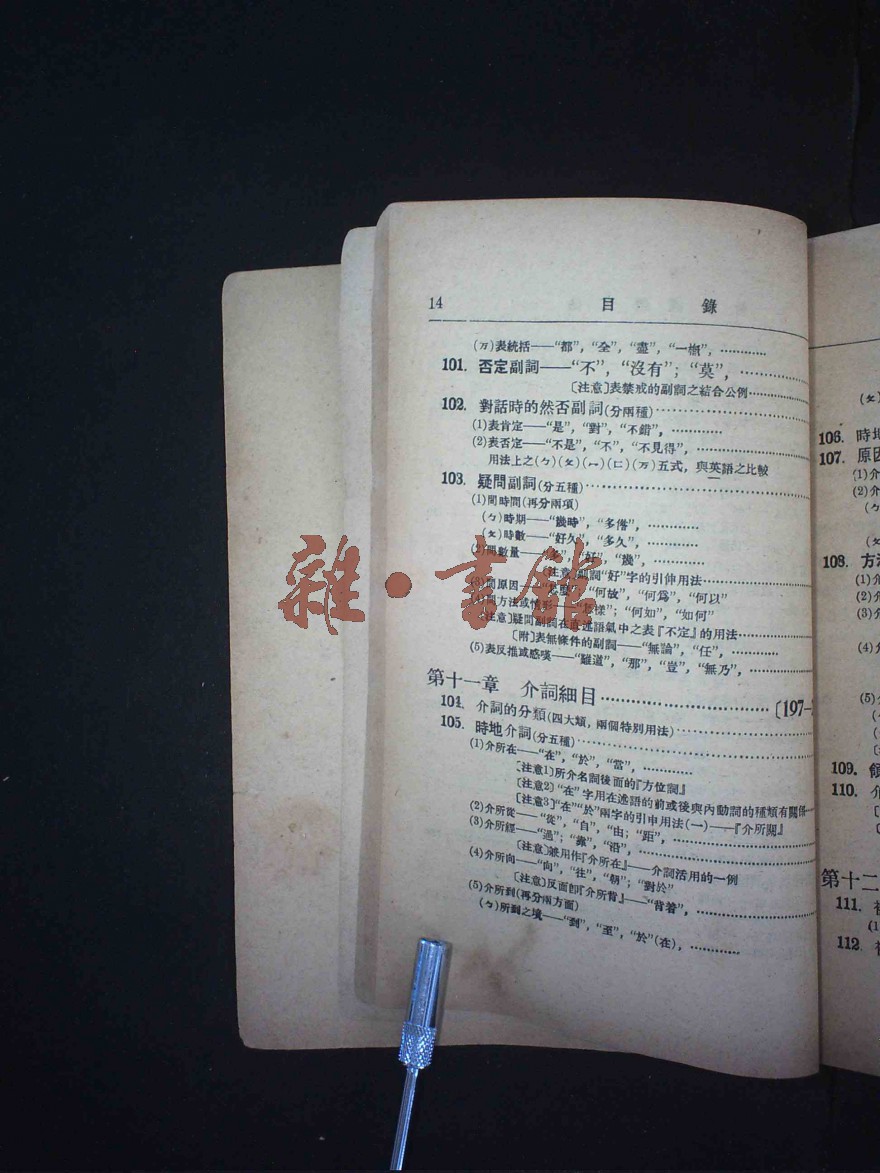 14 目錄
(ㄞ)表統括——“都”, “全”, “盡”, “一槪”, …………
101. 否定副詞——“不”, “沒有”; “莫”, …………
〔注意〕表禁戒的副詞之結合公例…………
102. 對話時的然否副詞(分兩種)…………
(1)表肯定——“是”, “對”, “不錯”, …………
(2)表否定——“不是”, “不”, “不見得”, …………
用法上之(ㄅ)(ㄆ)(ㄇ)(ㄈ)(万)五式, 與英語之比較
103. 疑問副詞(分五種)…………
(1)問時間(再分兩項)
(ㄅ)時期——“幾時”, “多僭”, …………
(ㄆ)時數——“好久”, “多久”, …………
(2)問數量——“多”, “好”, “幾”, …………
〔注意〕副詞“好”字的引伸用法…………
(3)問原因——“怎麼”, “何故”, “何爲”, “何以”
問方法或情形——“怎樣”; “何如”, “如何”
〔注意〕疑問副詞在直述語氣中之表『不定』的用法…………
〔附〕表無條件的副詞——“無論”, “任”, …………
(5)表反推或感嘆——“難道”, “那”, “豈”, “無乃”, …………
第十一章 介詞細目…………〔197-
104. 介詞的分類(四大類, 兩個特別用法)…………
105. 時地介詞(分五種)…………
(1)介所在——“在”, “於”, “當”, …………
〔注意1〕所介名詞後面的『方位詞』
〔注意2〕“在”字用在述語的前或後與內動詞的種類有關係
〔注意3〕“在”“於”兩字的引申用法(一)——『介所關』
(2)介所從——“從”, “自”, “由”; “距”, …………
(3)介所經——“過”; “靠”, “沿”, …………
〔注意〕兼用作『介所在』——介詞活用的一例
(4)介所向——“向”, “往”, “朝”; “對於”
〔注意〕反面卽『介所背』——“背着”, …………
(5)介所到(再分兩方面)
(ㄅ)所到之境——“到”, “至”, “於”(在), …………
(ㄆ)
106. 時地
107. 原因
(1)介
(2)介
(ㄅ)
(ㄆ)
108. 方法
(1)介
(2)介
(3)介
(4)介
(5)
109. 領
110. 介
第十二
111.
(1
112.
雜·書館